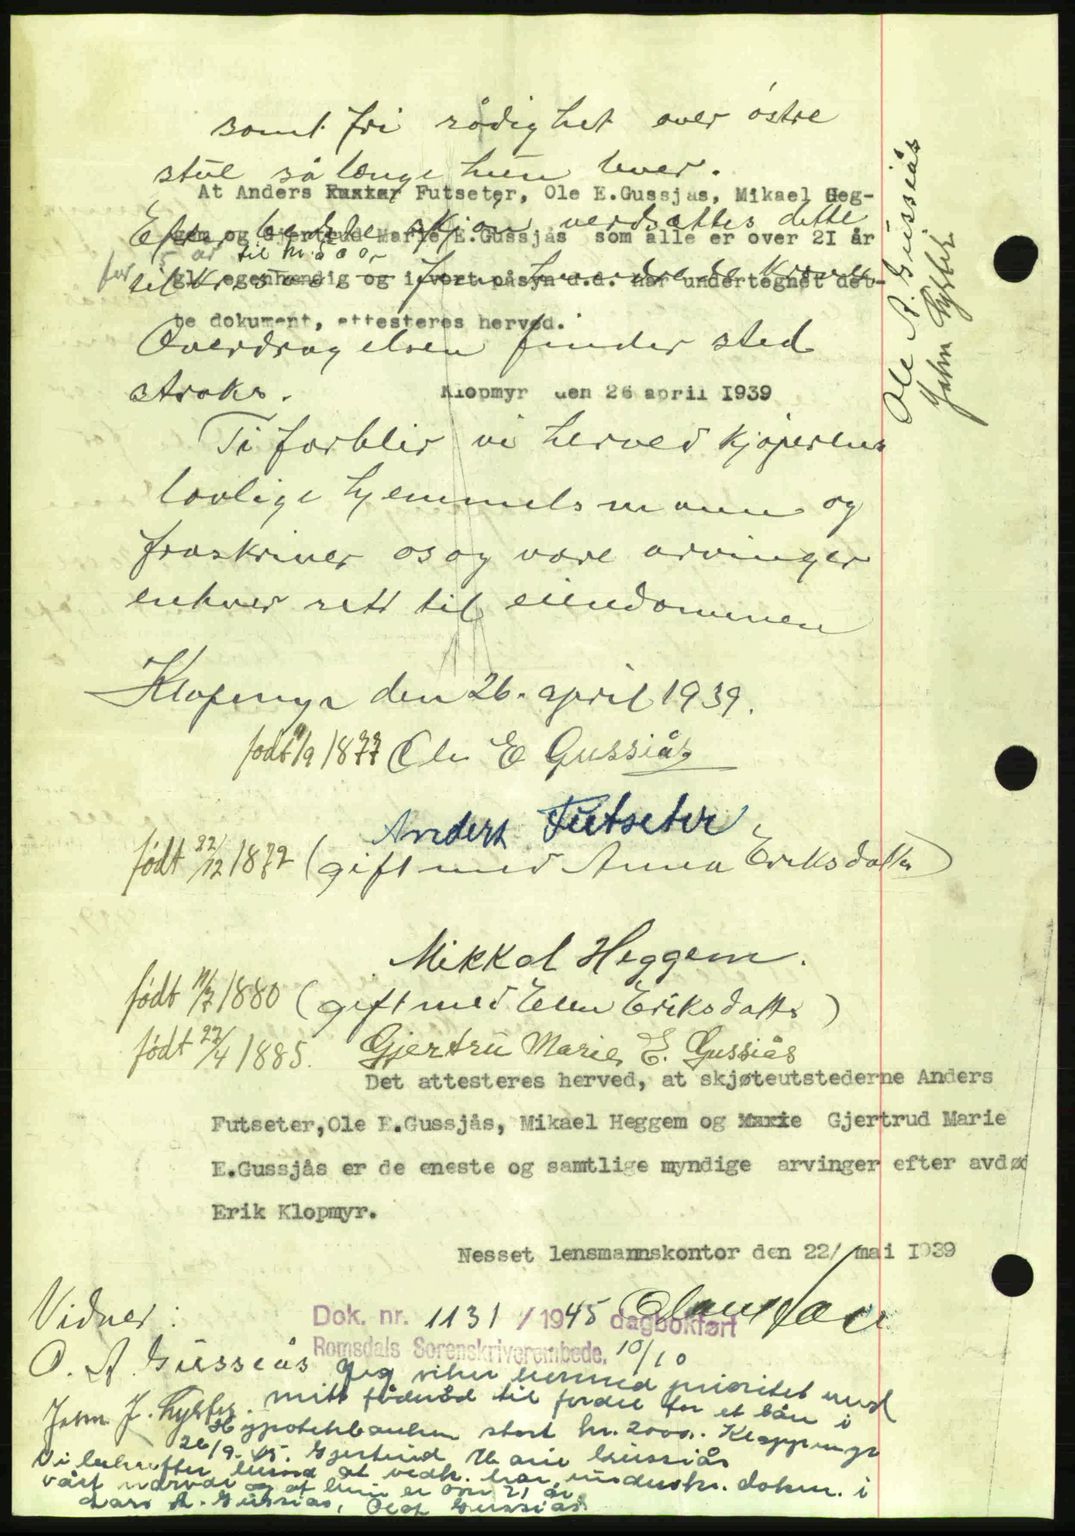 samt fri rådighet over østre
stue så længe hun lever.
At Anders Futseter, Ole E.Gussjås, Mikael Heg-
Efter bedste skjøn verdsættes dette
gem og Gjertrud Marie E.Gussjås som alle er over 21 år
for 5 år til kr. 500,-
til kr. 500,- fem hundrede kroner
egenhendig og i vort påsyn d.d. har undertegnet det-
te dokument, attesteres herved.
Overdragelsen finder sted
straks.
Klopmyr den 26 april 1939
Ole A. Gussiås
John Lykfer
Ti forblir vi herved kjøperens
lovlige hjemmelsmann og
fraskriver os og våre arvinger
enhver rett til eiendommen
Klopmyr den 26. april 1939.
født /9 1877 Ole E Gussiås
Anders Futseter
født 22/12 1872 (gift med Anna Eriksdatter)
Mikkal Heggem.
født 11/7 1880 (gift med Ellen Eriksdatter)
født 22/4 1885. Gjertru Marie E. Gussiås
Det attesteres herved, at skjøteutstederne Anders
Futseter,Ole E.Gussjås, Mikael Heggem og Gjertrud Marie
E.Gussjås er de eneste og samtlige myndige arvinger efter avdød
Erik Klopmyr.
Nesset lensmannskontor den 22/ mai 1939
Vidner:
Dok. nr. 1131 / 1945 dagbokført
Romsdals Sorenskriverembede. 10/10
O. A. Gussiås
John J. Lykfer.
Jeg viker hermed prioritet med
mitt føderåd til fordel for et lån i
Hypotekbanken stort kr. 2000,-. Kloppmyr
26/9-45. Gjertrud Marie Gussiås
Vi bekrefter herved at vedk. har underskr. dokum. i
vårt nærvær og at hun er over 21 år
Lars A. Gussiås, Olaf Gussiås.